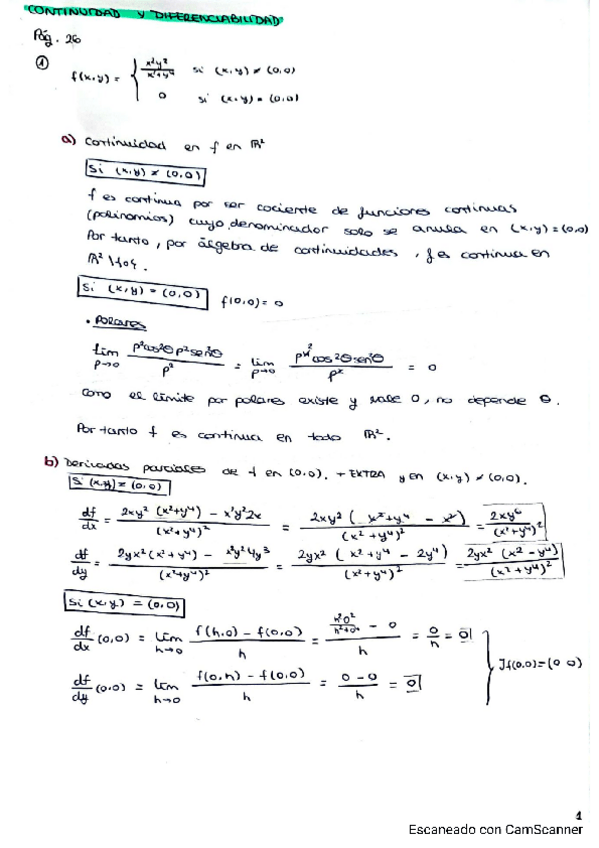 CONTINUIDAD Y DIFERENCIABILIDAD
Pág. 26
① f(x,y) = { x²y²/(x²+y⁴) si (x,y) ≠ (0,0)
0 si (x,y) = (0,0)
a) Continuidad en f en ℝ²
Si (x,y) ≠ (0,0)
f es continua por ser cociente de funciones continuas
(polinomios) cuyo denominador solo se anula en (x,y)=(0,0)
Por tanto, por álgebra de continuidades, f es continua en
ℝ² \ {0}.
Si (x,y) = (0,0) f(0,0) = 0
• POLARES
lim ρ→0 ρ²cos²θ ρ²sen²θ / ρ² = lim ρ→0 ρ⁴ cos²θ·sen²θ / ρ² = 0
Como el límite por polares existe y vale 0, no depende θ.
Por tanto f es continua en todo ℝ².
b) Derivadas parciales de f en (0,0). + EXTRA y en (x,y) ≠ (0,0).
Si (x,y) ≠ (0,0)
df/dx = 2xy²(x²+y⁴) − x²y²2x / (x²+y⁴)² = 2xy²(x²+y⁴ − x²) / (x²+y⁴)² = 2xy⁶ / (x²+y⁴)²
df/dy = 2yx²(x²+y⁴) − x²y²4y³ / (x²+y⁴)² = 2yx²(x²+y⁴ − 2y⁴) / (x²+y⁴)² = 2yx²(x² − y⁴) / (x²+y⁴)²
Si (x,y) = (0,0)
df/dx (0,0) = lim h→0 f(h,0) − f(0,0) / h = (h²0²/(h²+0⁴) − 0) / h = 0/h = 0
df/dy (0,0) = lim h→0 f(0,h) − f(0,0) / h = 0 − 0 / h = 0 } Jf(0,0) = (0 0)
1
Escaneado con CamScanner